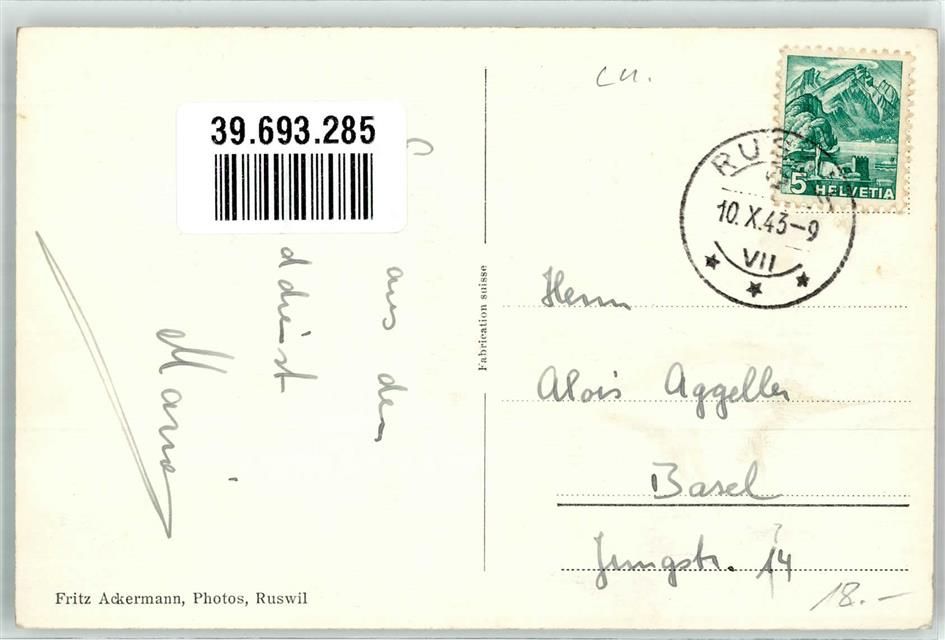 39.693.285
aus dem
ddienst
Mario
Fabrication suisse
Fritz Ackermann, Photos, Ruswil
cu.
5 HELVETIA
RUS
10.X.43-9
VII
Herrn
Alois Aggeller
Basel
Jungstr. 14
18.-